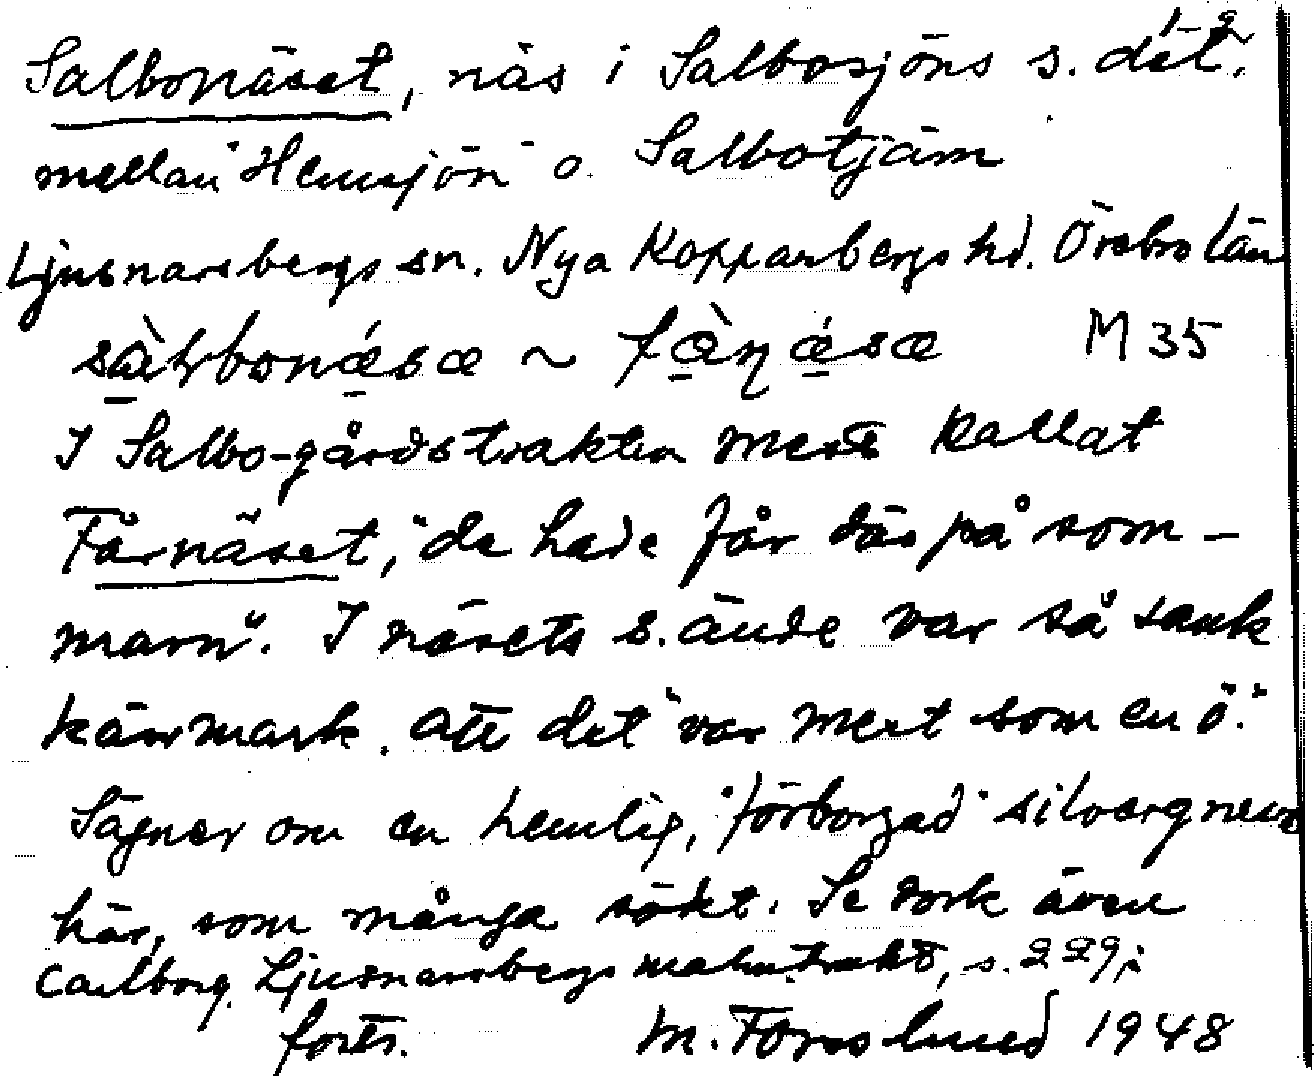 Salbonäset, näs i Salbosjöns s. del,
mellan "Hemsjön" o. Salbotjärn
Ljusnarsbergs sn. Nya Kopparbergs hd. Örebro län
M 35
I Salbo-gårdstrakten mest kallat
Fårnäset, "de hade får där på som-
marn". I näsets s. ände var så sank
kärrmark. att det "var mest som en ö."
Sägner om en hemlig, "förborgad" silvergruva
här, som många sökt. Se dock även
Carlborg. Ljusnarsbergs malmtrakt, s. 229;
forts. M. Forsslund 1948